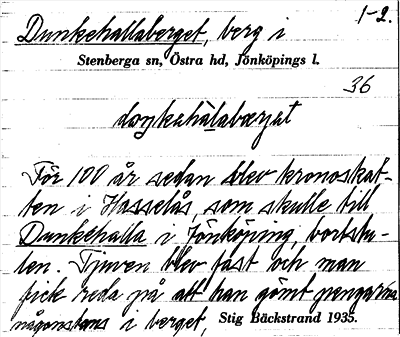 1-2.
Dunkehallaberget, berg i
Stenberga sn, Östra hd, Jönköpings l.
36
För 100 år sedan blev kronoskat-
ten i Hasselås, som skulle till
Dunkehalla i Jönköping bortstu-
len. Tjuven blev fast och man
fick reda på att han gömt pengarna
någonstans i berget,
Stig Bäckstrand 1935.